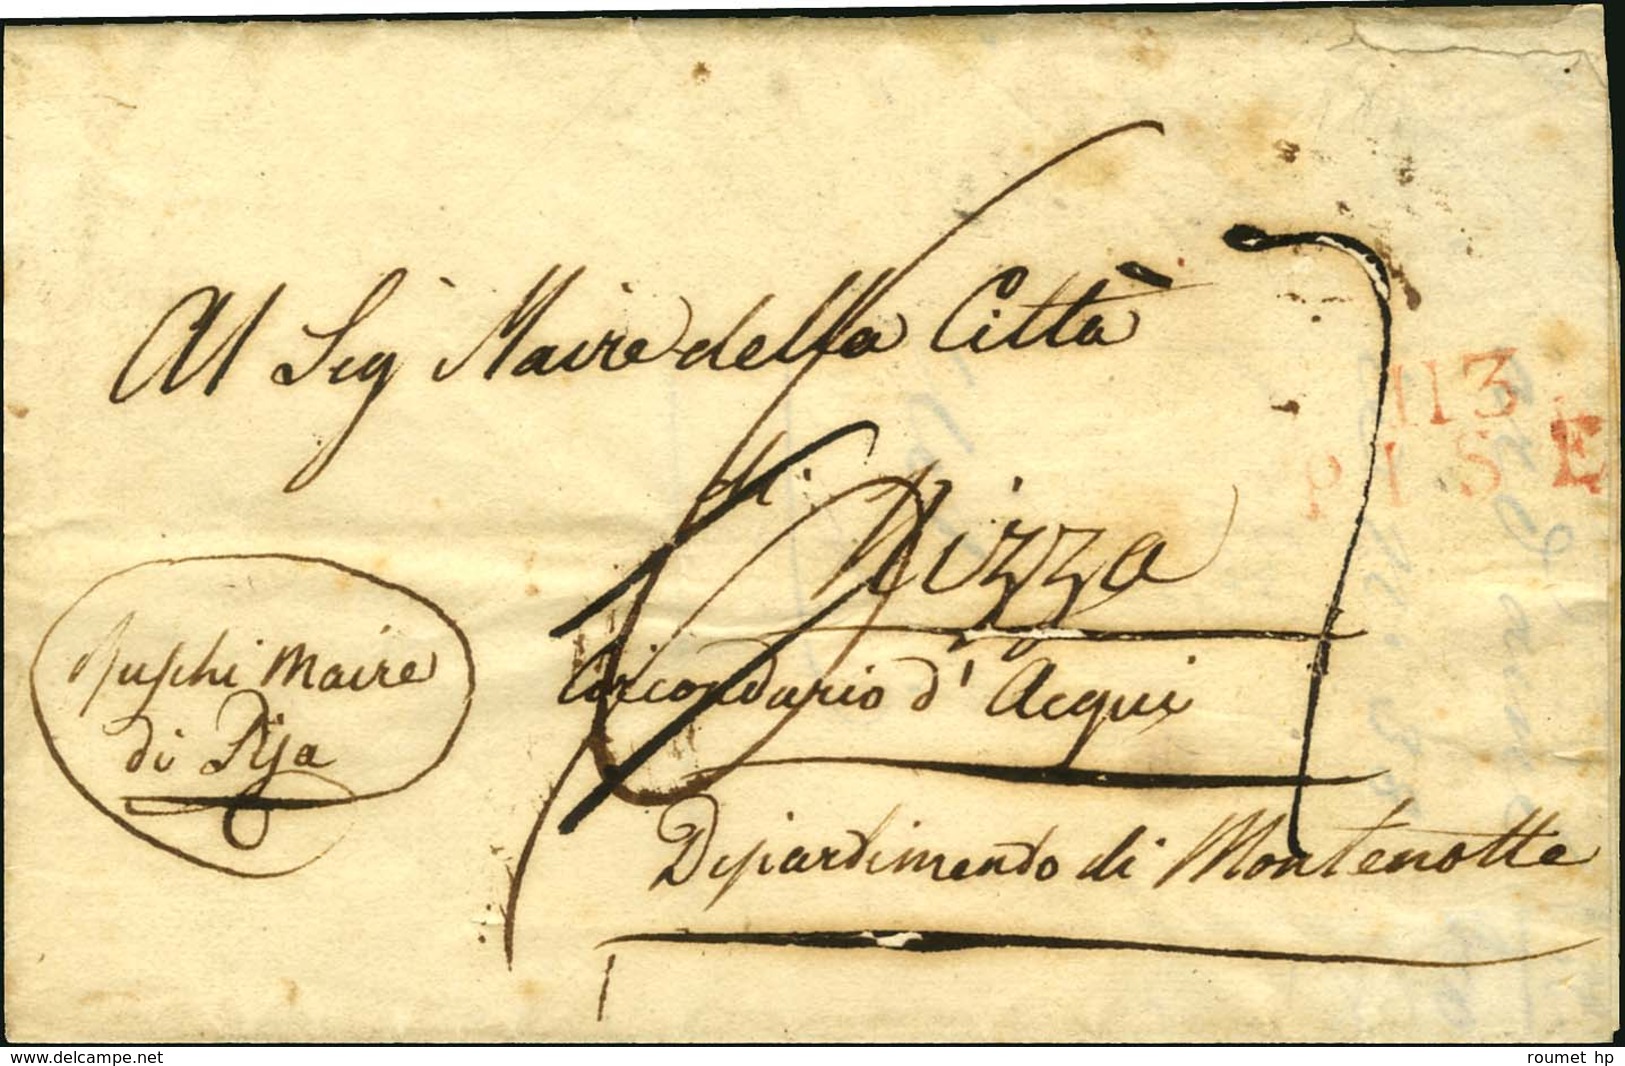 Al Sig Maire della Città
di Nizza
113
PISE
Circondario d'Acqui
Dipartimento di Montenotte
Ruschi Maire
di Pisa
www.delcampe.net
roumet hp